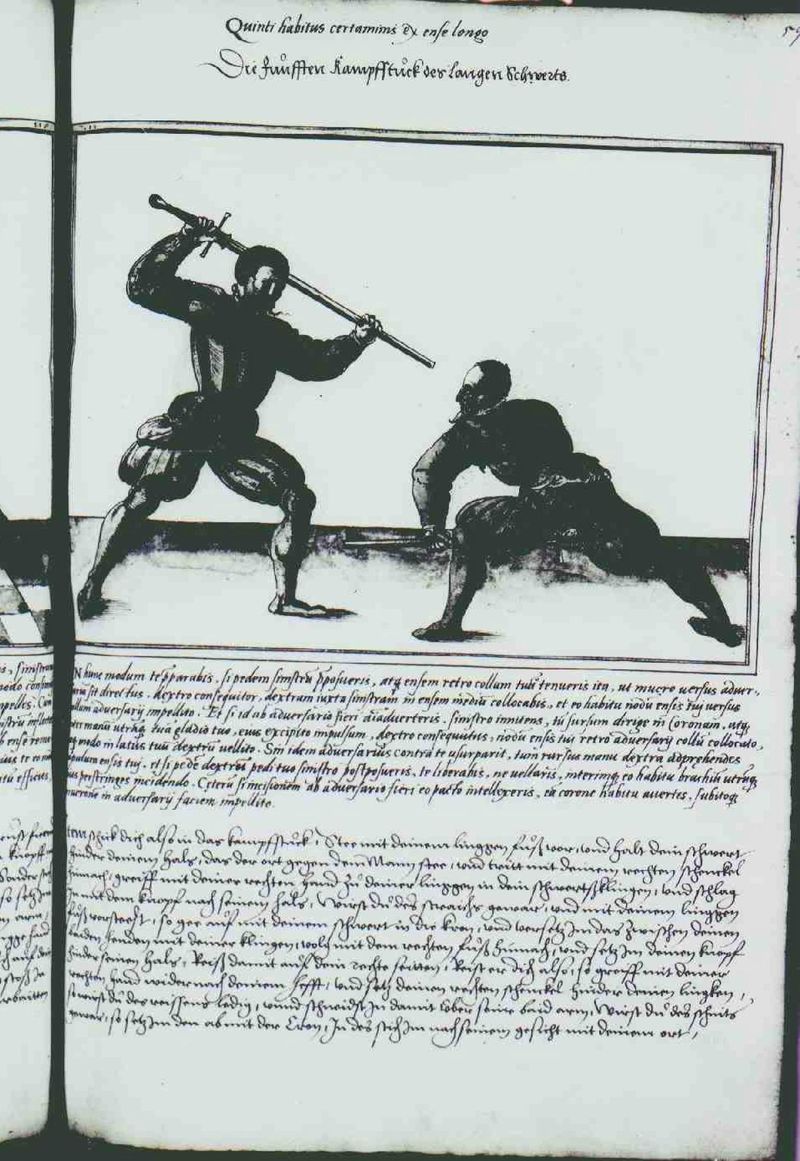 Quinti habitus certaminis ex ense longo
59
Die fünfften Kampfstuck des langen Schwerts.
N hunc modum te p̄parabis, si pedem sinistrū p̄posueris, atq̄ ensem retro collum tuū tenueris ita, ut mucro versus adver-,
sit directus, dextro consequitor, dextram iuxta sinistram in ensem mediū collocabis, et eo habitu nodū ensis tui versus
collum adversarij impellito. Et si id ab adversario fieri aīadverteris, sinistro innitens, tū sursum dirige in Coronam, utq̄
inter manū utrāq̄ tua gladio tuo, eius excipito impulsum, dextro consequitor, nodū ensis tui retro adversarij collū collocato,
eq̄ modo in latus tuū dextrū vellito. Sin idem adversarius contra te usurparit, tum rursus manu dextra adprehendes
capulum ensis tui, et si pedē dextrū pedi tuo sinistro postposueris, te liberabis, ne vellaris, interimq̄ eo habitu brachia utraq̄
eius perstringes incidendo. Ceterū si incisionem ab adversario fieri eo pacto intellexeris, ea corone habitu avertes, subitoq̄
mucrone in adversarij faciem impellito.
Item schick dich also in das kampfstuck, Stee mit deinem linggen fuß vor, und halt dein schwert
hinder deinem hals, das der ort gegen dem Mann stee, und tritt mit deinem rechten schenckel
hinnach, greiff mit deiner rechten hand zu deiner linggen in dein schwertsklingen, und schlag
in mit dem knopf nach seinem hals, Wurst du des straichs gewar, und mit deinem linggen
fuß vorsteest, so gee auf mit deinem schwert in die kron, und versetz im das zwischen deinen
baiden henden mit deiner klingen, volg mit dem rechten fuß hinnach, und setz im deinen knopf
hinder seinen hals, Reiß damit auf dein rechte seitten, Reist er dich also, so greiff mit deiner
rechten hand wider nach deinem hefft, und setz deinen rechten schenckel hinder deinen lingken,
so wirst du des reissens ledig, unnd schneidst in damit über seine baid arm, Wurst du des schnits
gewar, so setz im den ab mit der Cron, In des stich im nach seinem gesicht mit deinem ort,